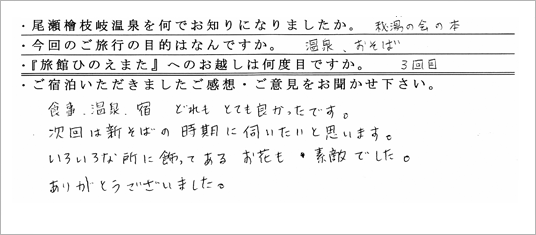 ・尾瀬檜枝岐温泉を何でお知りになりましたか。 秘湯の会の本
・今回のご旅行の目的はなんですか。 温泉、おそば
・『旅館ひのえまた』へのお越しは何度目ですか。 3回目
・ご宿泊いただきましたご感想・ご意見をお聞かせ下さい。
食事、温泉、宿 どれも とても良かったです。
次回は新そばの 時期に 伺いたいと思います。
いろいろな所に飾ってある お花も 素敵でした。
ありがとうございました。